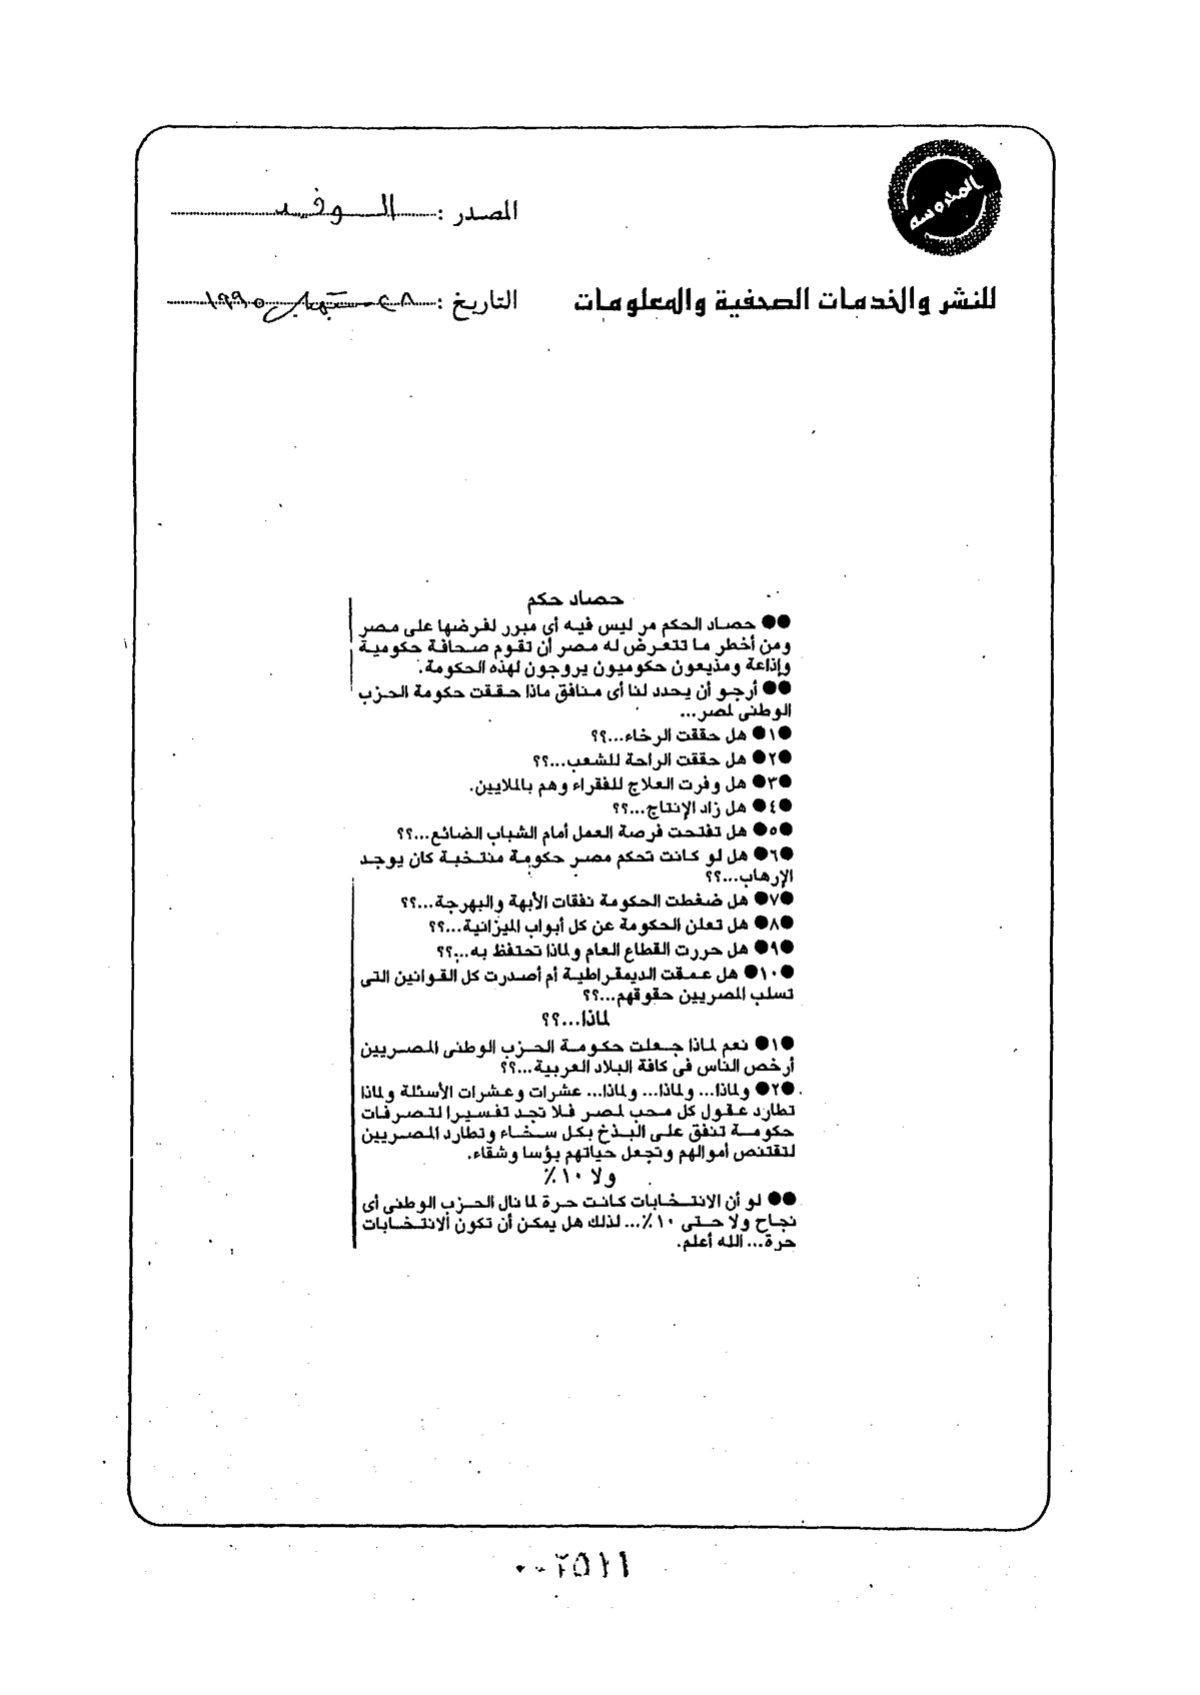 المحروسة
المصدر : الوفد
للنشر والخدمات الصحفية والمعلومات
التاريخ : ٢٨ سبتمبر ١٩٩٥
حصاد حكم
●● حصاد الحكم مر ليس فيه أى مبرر لفرضها على مصر
ومن أخطر ما تتعرض له مصر أن تقوم صحافة حكومية
وإذاعة ومذيعون حكوميون يروجون لهذه الحكومة.
●● أرجو أن يحدد لنا أى منافق ماذا حققت حكومة الحزب
الوطنى لمصر...
●١● هل حققت الرخاء...؟؟
●٢● هل حققت الراحة للشعب...؟؟
●٣● هل وفرت العلاج للفقراء وهم بالملايين.
●٤● هل زاد الإنتاج...؟؟
●٥● هل تفتحت فرصة العمل أمام الشباب الضائع...؟؟
●٦● هل لو كانت تحكم مصر حكومة منتخبة كان يوجد
الإرهاب...؟؟
●٧● هل ضغطت الحكومة نفقات الأبهة والبهرجة...؟؟
●٨● هل تعلن الحكومة عن كل أبواب الميزانية...؟؟
●٩● هل حررت القطاع العام ولماذا تحتفظ به...؟؟
●١٠● هل عمقت الديمقراطية أم أصدرت كل القوانين التى
تسلب المصريين حقوقهم...؟؟
لماذا...؟؟
●١● نعم لماذا جعلت حكومة الحزب الوطنى المصريين
أرخص الناس فى كافة البلاد العربية...؟؟
●٢● ولماذا... ولماذا... ولماذا... عشرات وعشرات الأسئلة ولماذا
تطارد عقول كل محب لمصر فلا تجد تفسيرا لتصرفات
حكومة تنفق على البذخ بكل سخاء وتطارد المصريين
لتقتنص أموالهم وتجعل حياتهم بؤسا وشقاء.
ولا ١٠٪
●● لو أن الانتخابات كانت حرة لما نال الحزب الوطنى أى
نجاح ولا حتى ١٠٪... لذلك هل يمكن أن تكون الانتخابات
حرة... الله أعلم.